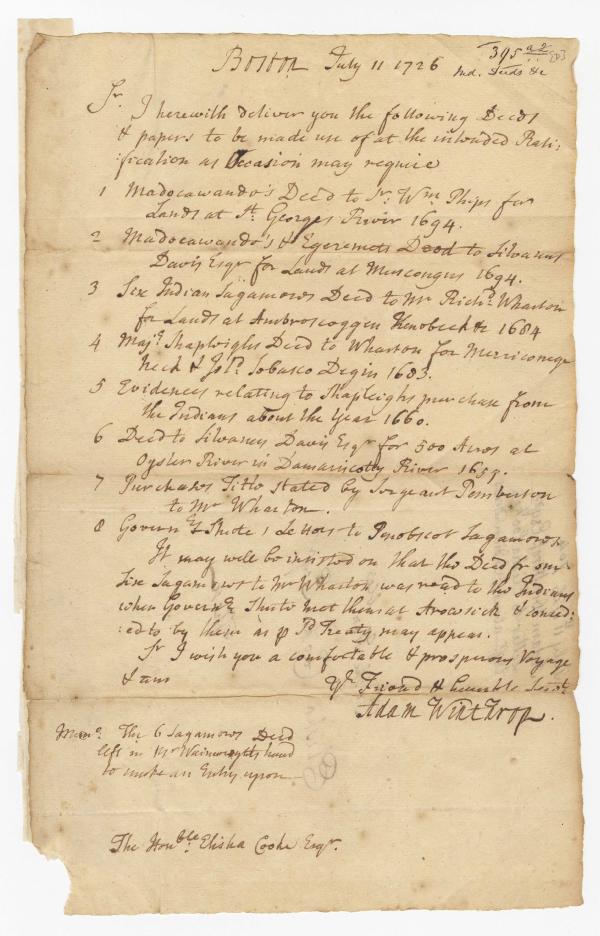 395 a2
Ind. Deeds &c
Boston July 11 1726
Sr. I herewith deliver you the following Deeds
& papers to be made use of at the intended Rati:
:fication as Occasion may require
1 Madocawando's Deed to Sr. Wm. Phips for
Lands at St. Georges River 1694.
2 Madocawando's & Egeremets Deed to Silvanus
Davis Esqr for Lands at Muscongus 1694.
3 Six Indian Sagamores Deed to Mr Richd. Wharton
for Lands at Ambroscoggen Kenebeck &c 1684
4 Majr. Shapleighs Deed to Wharton for Merriconege
Neck & Sebasco Degin 1683.
5 Evidences relating to Shapleighs purchase from
the Indians about the Year 1660.
6 Deed to Silvanus Davis Esqr for 500 Acres at
Oyster River in Damariscotty River 1659.
7 Purchasers Title stated by Sergeant Pemberton
to Mr Wharton.
8 Governr Shute's Letters to Penobscot Sagamores
It may well be insisted on that the Deed from
Six Sagamores to Mr Wharton was read to the Indians
when Governr. Shute met them at Arowsick & consed:
:ed to by them as p Pd Treaty may appear.
Sr I wish you a comfortable & prosperous Voyage
& am
Yr. Friend & humble Servt.
Adam Winthrop.
Memo. The 6 Sagamores Deed
left in Mr Wainwrights hand
to make an Entry upon
The Honble. Elisha Cooke Esqr.